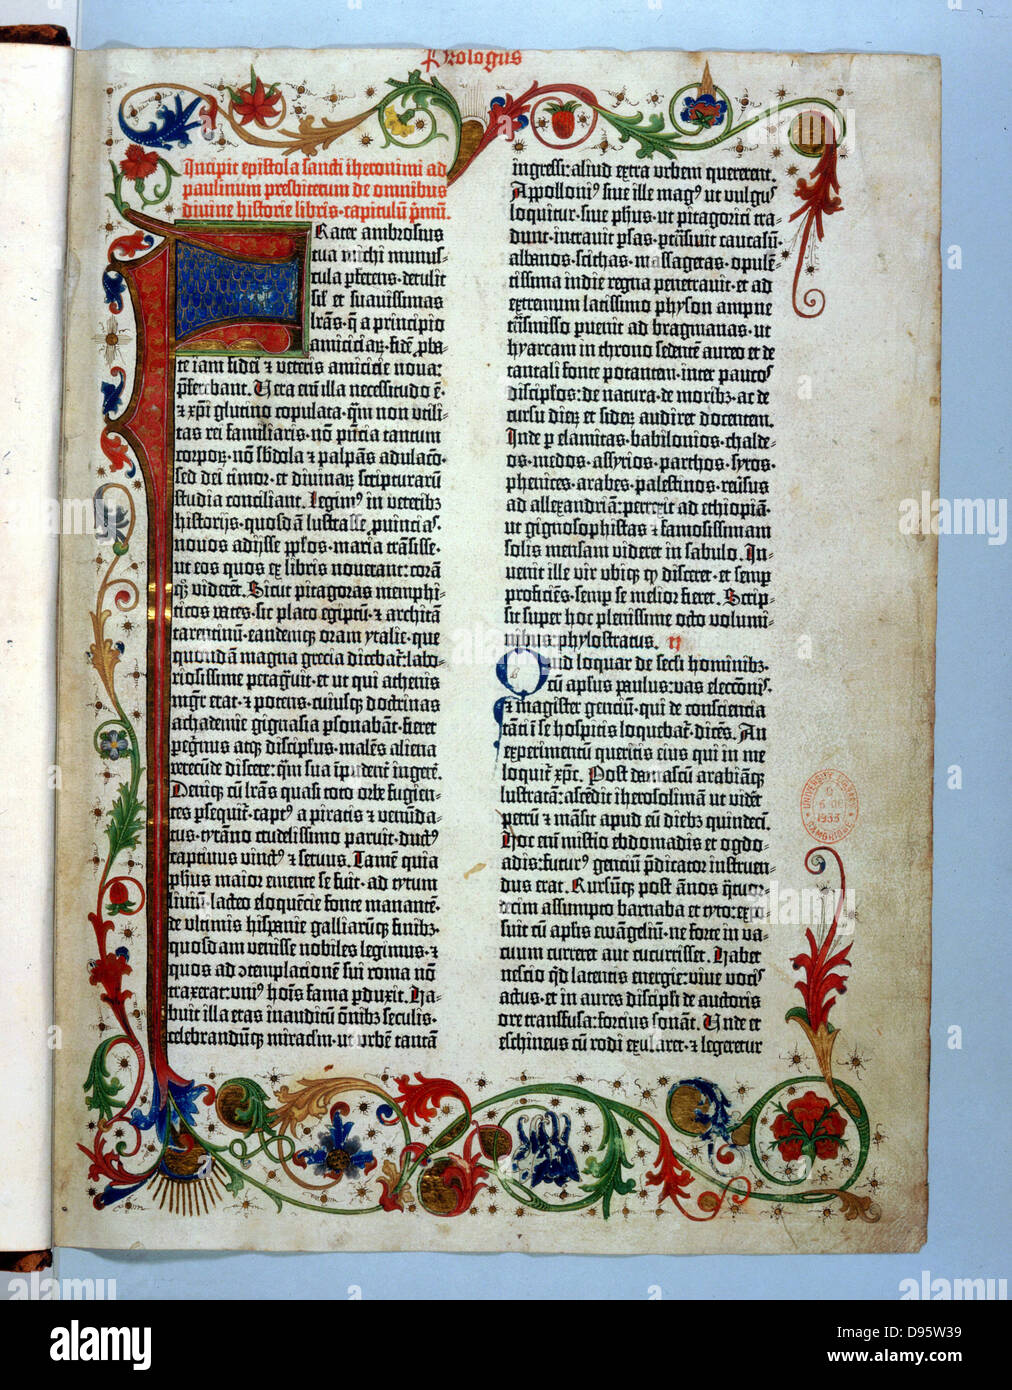 Prologus
Incipit epistola sancti iheronimi ad
paulinum presbiterum de omnibus
divine historie libris·capitulū p̄mū.
Frater ambrosius
tua michi munus-
cula p̄ferens·detulit
sił et suavissimas
lr̄as·q̄ a principio
amicicie
te iam fidei ⁊ veteris amicicie nova:
p̄ferebant. Vera em̄ illa necessitudo ē·
⁊ xp̄i glutino copulata·q̄m non utili-
tas rei familiaris·nō pn̄cia tantum
corporꝝ·nō s̄bdola ⁊ palpās adulacō·
sed dei timor·et divinaꝝ scripturarū
studia conciliant. Legimꝰ in veteribꝫ
historijs·quosdā lustrasse ꝓvīciaꝭ·
novos adijsse pp̄los·maria trāsisse·
ut eos quos ex libris noverant: corā
qꝫ viderēt. Sicut pitagoras memphi-
ticos vates·sic plato egiptū·⁊ architā
tarentinū·eandemqꝫ oram ytalie·que
quondā magna grecia dicebat̄: labo-
riosissime peragravit·et ut qui athenis
mgr̄ erat·⁊ potens·cuiusqꝫ doctrinas
achademie gignasia ꝑsonabāt·fieret
peg̓nus atqꝫ discipulus·malēs aliena
verecūde discere: q̄m sua īpudent̓ ingerē.
Deniqꝫ cū lr̄as quasi toto orbe fugien-
tes ꝑsequit̄·captꝰ a piratis ⁊ venūda-
tus·tyrāno crudelissimo paruit·ductꝰ
captivus vinctꝰ ⁊ servus. Tamē quia
ph̄us maior emente se fuit·ad tytum
livium·lacteo eloquēcie fonte manantē·
de ultimis hispanie galliarūqꝫ finibꝫ·
quosdam venisse nobiles legimus·⁊
quos ad ꝯtemplacionē sui roma nō
traxerat: uniꝰ hoīs fama ꝑduxit. Ha-
buit illa etas inauditū ōnibꝫ seculis·
celebrandūqꝫ miraclm·ut urbē tantā
ingressi: aliud extra urbem quererent.
Appolloniꝰ sive ille magꝰ ut vulgꝰ
loquitur·sive ph̄us·ut pitagorici tra-
dunt·intravit ꝑsas·ptr̄asivit caucasū·
albanos·scithas·massagetas·opulē-
tissima indie regna penetravit·et ad
extremum latissimo physon ampne
trāsmisso ꝑvenit ad bragmanas·ut
hyarcam in throno sedentē aureo et de
tantali fonte potantem·inter paucos
discipl̄os·de natura·de moribꝫ·ac de
cursu dieꝝ et sideꝝ audiret docentem.
Inde ꝑ elamitas·babilonios·chalde-
os·medos·assyrios·parthos·syros·
phenices·arabes·palestinos·reversus
ad allexandriā: perrexit ad ethiopiā·
ut gignosophistas ⁊ famosissimam
solis mensam videret in sabulo. In-
venit ille vir ubiqꝫ qd̄ disceret·et semꝑ
proficiēs·semꝑ se melior fieret. Scrip-
sit super hoc plenissime octo volumi-
nibus: phylostratus. II
Quid loquar de secl̓i hominibꝫ·
cū apl̄us paulus: vas electōnis·
⁊ magister genciū·qui de consciencia
tāti ī se hospitis loquebat̄·dicēs. An
experimentū queritis eius qui in me
loquit̄ xp̄c. Post damascū arabiāqꝫ
lustratā: ascēdit iherosolimā ut vidēt
petrū ⁊ māsit apud eū diebꝫ quindecī.
Hoc em̄ misterio ebdomadis et ogdo-
adis: futurꝰ genciū p̄dicator instruen-
dus erat. Rursūqꝫ post ānos q̄tuor-
decim assumpto barnaba et tyto: expo-
suit cū apl̄is ewāgeliū·ne forte in va-
cuum curreret aut cucurrisset. Habet
nescio q̓d latentis energie: vive vocis
actus·et in aures discipl̄i de auctoris
ore transfusa: forcius sonāt. Unde et
eschineus cū rodi exularet·⁊ legeretur
UNIVERSITY LIBRARY
1933
CAMBRIDGE
alamy
alamy
Image ID: D95W39
www.alamy.com